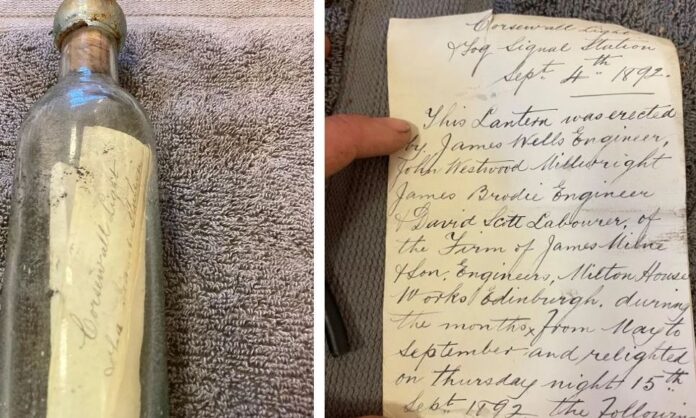 Corsewall Light
Corsewall Light
& Fog Signal Station
Sept 4th 1892.
This Lantern was erected
by James Wells Engineer,
John Westwood Millwright
James Brodie Engineer
& David Scott Labourer, of
the Firm of James Milne
& Son, Engineers, Milton House
Works Edinburgh, during
the months, from May to
September and relighted
on Thursday night 15th
Sept 1892 the